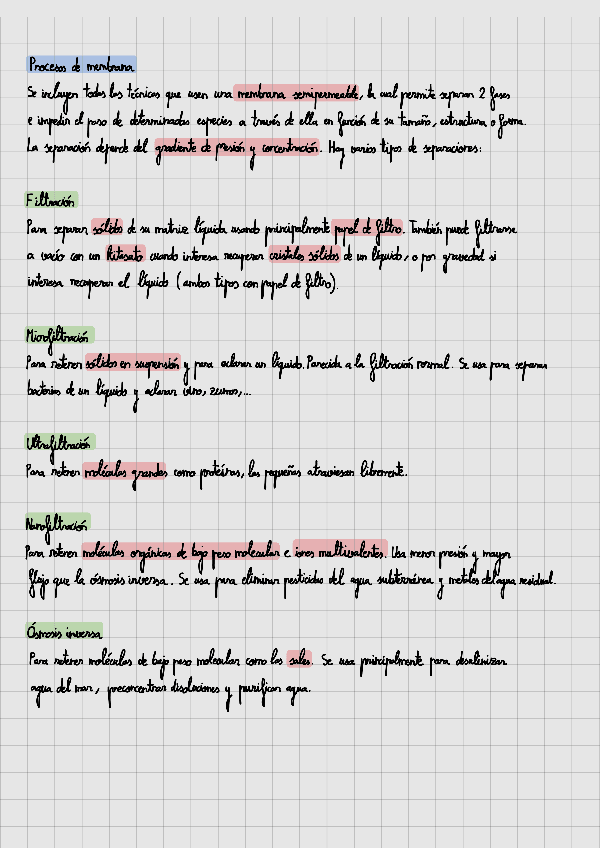 Procesos de membrana
Se incluyen todas las técnicas que usen una membrana semipermeable, la cual permite separar 2 fases
e impedir el paso de determinadas especies a través de ella en función de su tamaño, estructura o forma.
La separación depende del gradiente de presión y concentración. Hay varios tipos de separaciones:
Filtración
Para separar sólidos de su matriz líquida usando principalmente papel de filtro. También puede filtrarse
a vacío con un Kitasato cuando interesa recuperar cristales sólidos de un líquido, o por gravedad si
interesa recuperar el líquido (ambos tipos con papel de filtro).
Microfiltración
Para retener sólidos en suspensión y para aclarar un líquido. Parecida a la filtración normal. Se usa para separar
bacterias de un líquido y aclarar vino, zumos,...
Ultrafiltración
Para retener moléculas grandes como proteínas, las pequeñas atraviesan libremente.
Nanofiltración
Para retener moléculas orgánicas de bajo peso molecular e iones multivalentes. Usa menor presión y mayor
flujo que la ósmosis inversa. Se usa para eliminar pesticidas del agua subterránea y metales del agua residual.
Ósmosis inversa
Para retener moléculas de bajo peso molecular como las sales. Se usa principalmente para desalinizar
agua del mar, preconcentrar disoluciones y purificar agua.